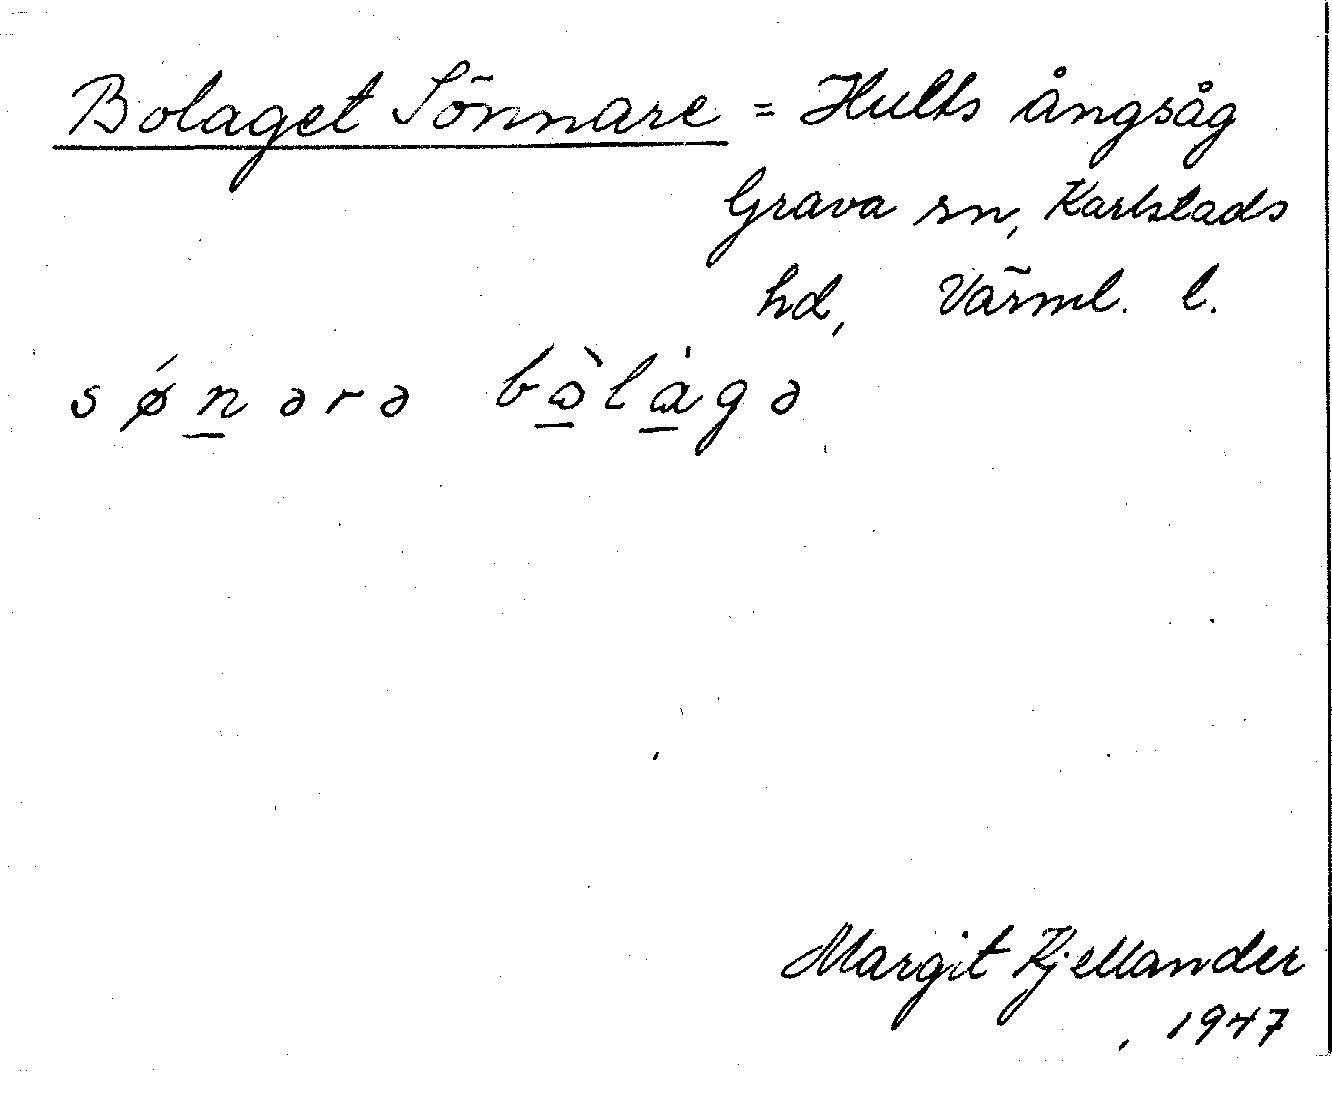 Bolaget Sönnare = Hults ångsåg
Grava sn, Karlstads
hd, Värml. l.
sǿn̲ərə bò̲là̲gə
Margit Kjellander
1947